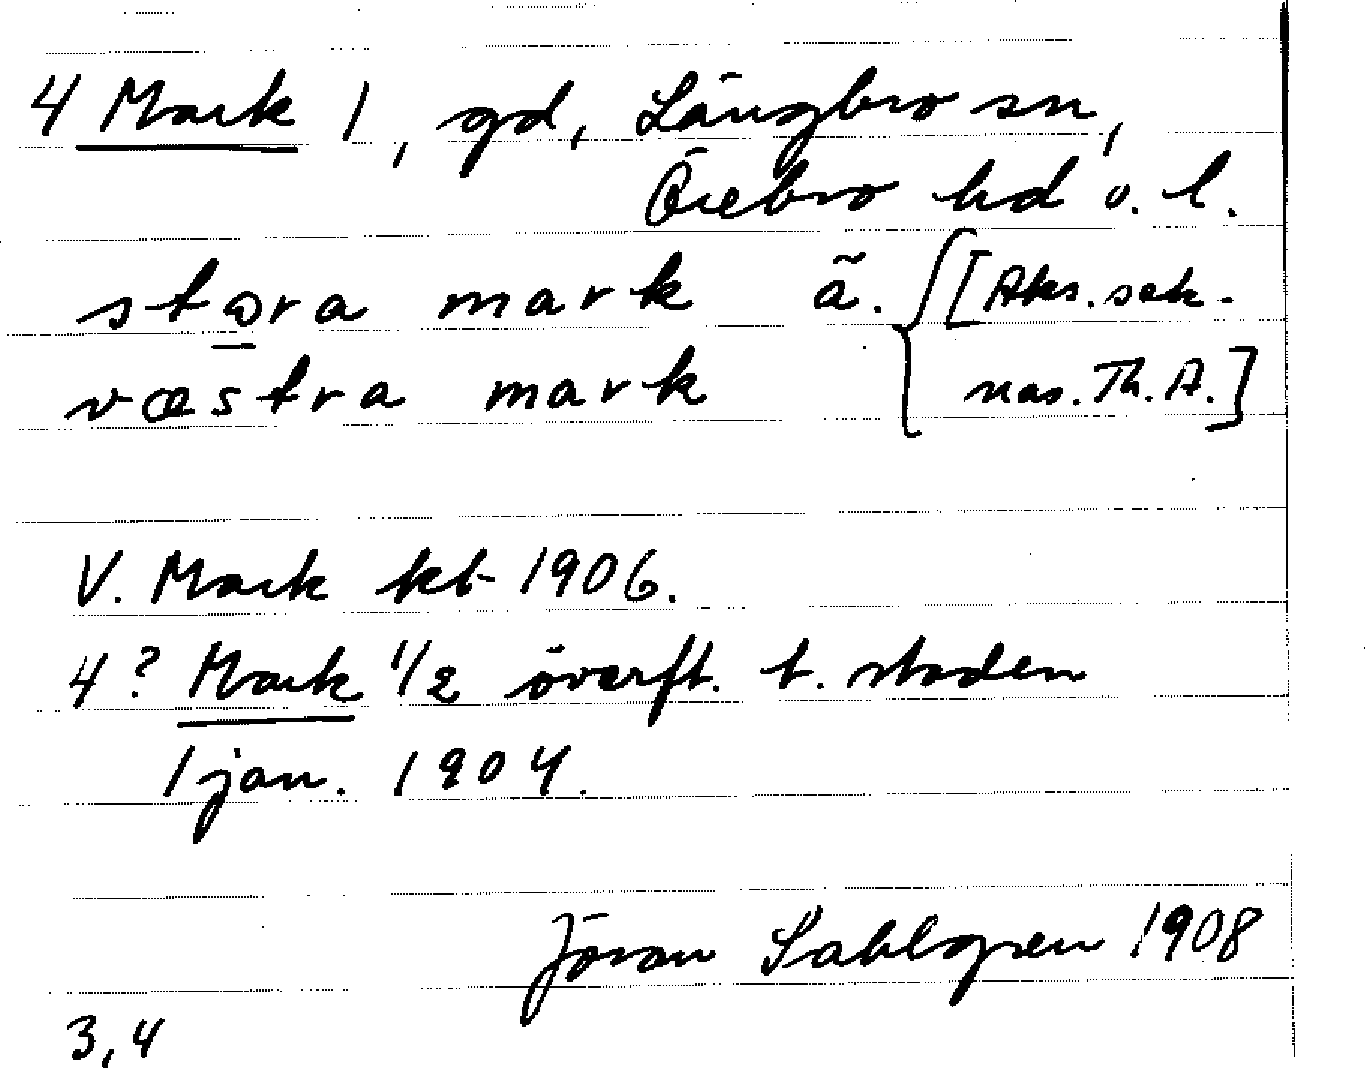 4 Mark 1, gd, Längbro sn,
Örebro hd o. l.
støra mark ã. {[Aks. sak-
væstra mark nas. Th. A.]
V. Mark kb 1906.
4? Mark 1/2 överft. t. staden
1 jan. 1904.
Jöran Sahlgren 1908
3,4